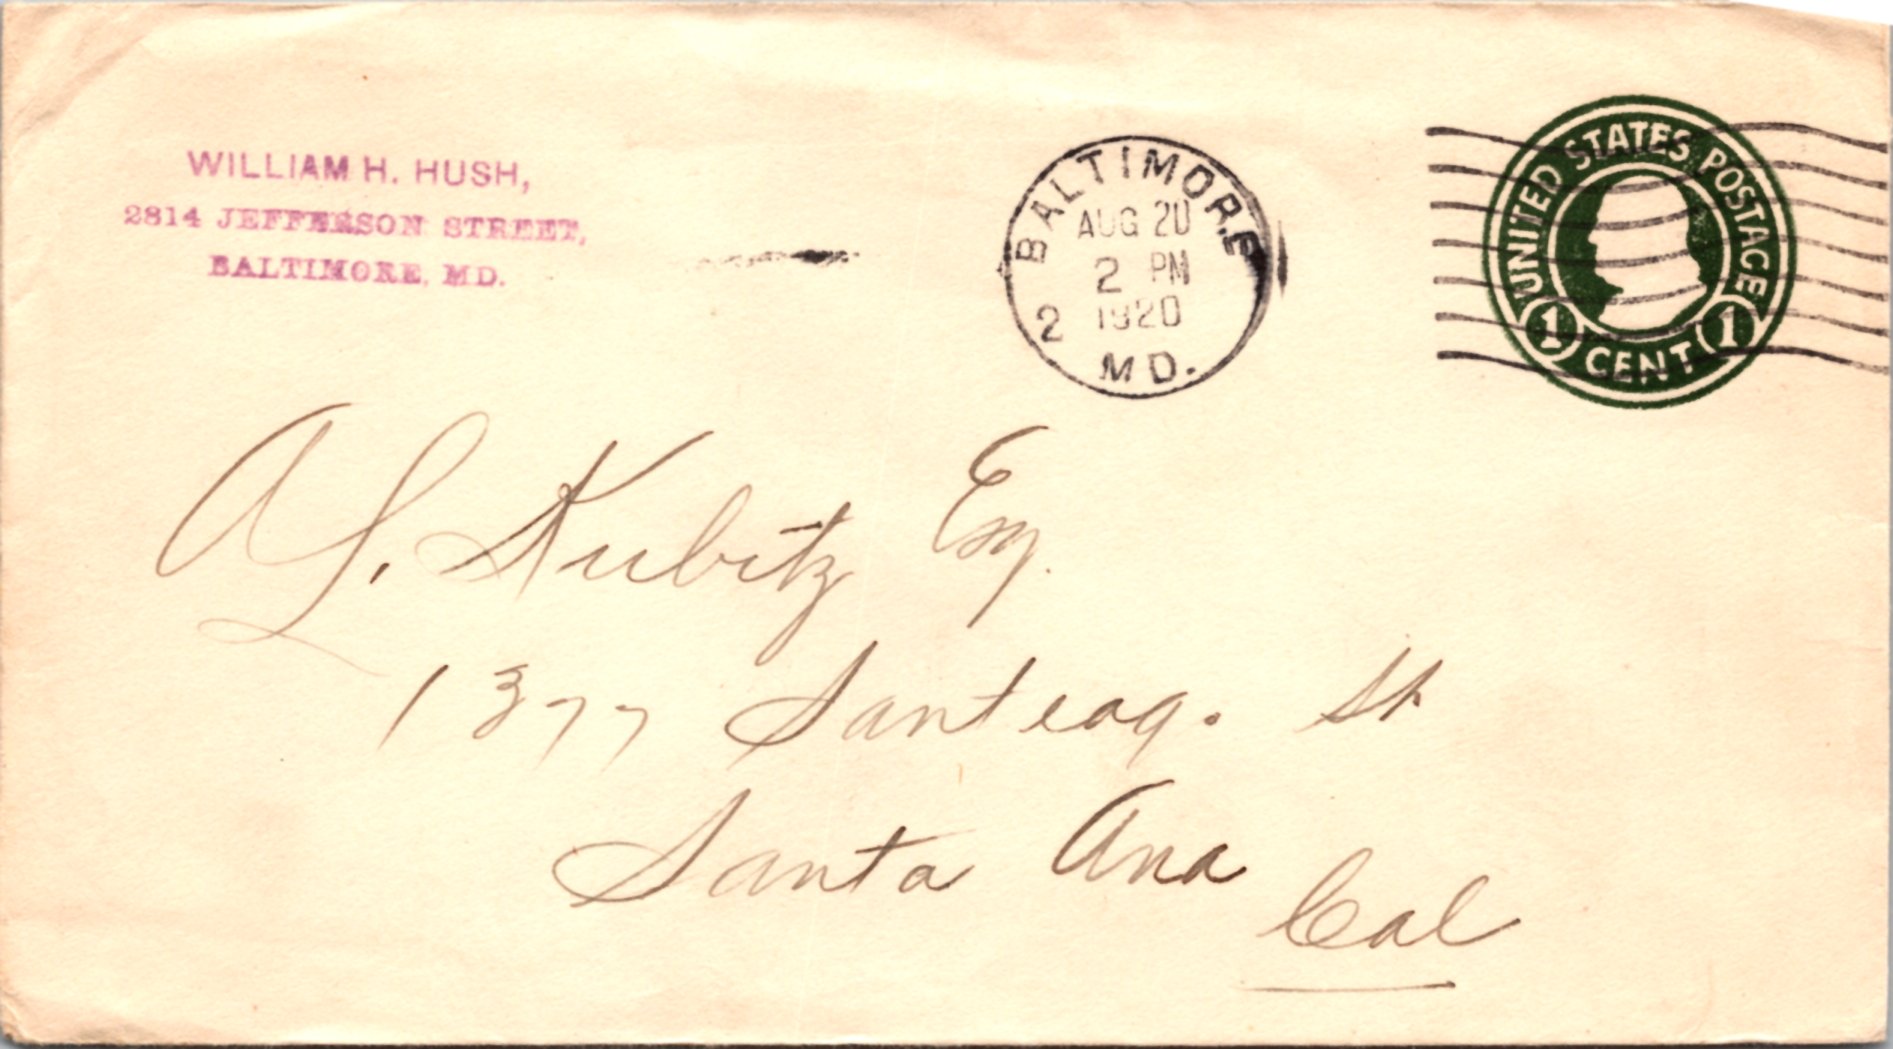 WILLIAM H. HUSH,
2814 JEFFERSON STREET,
BALTIMORE, MD.
BALTIMORE
AUG 20
2 PM
1920
2
MD.
UNITED STATES POSTAGE
1 CENT 1
A L. Kubitz Esq.
1377 Santeag. St
Santa Ana
Cal